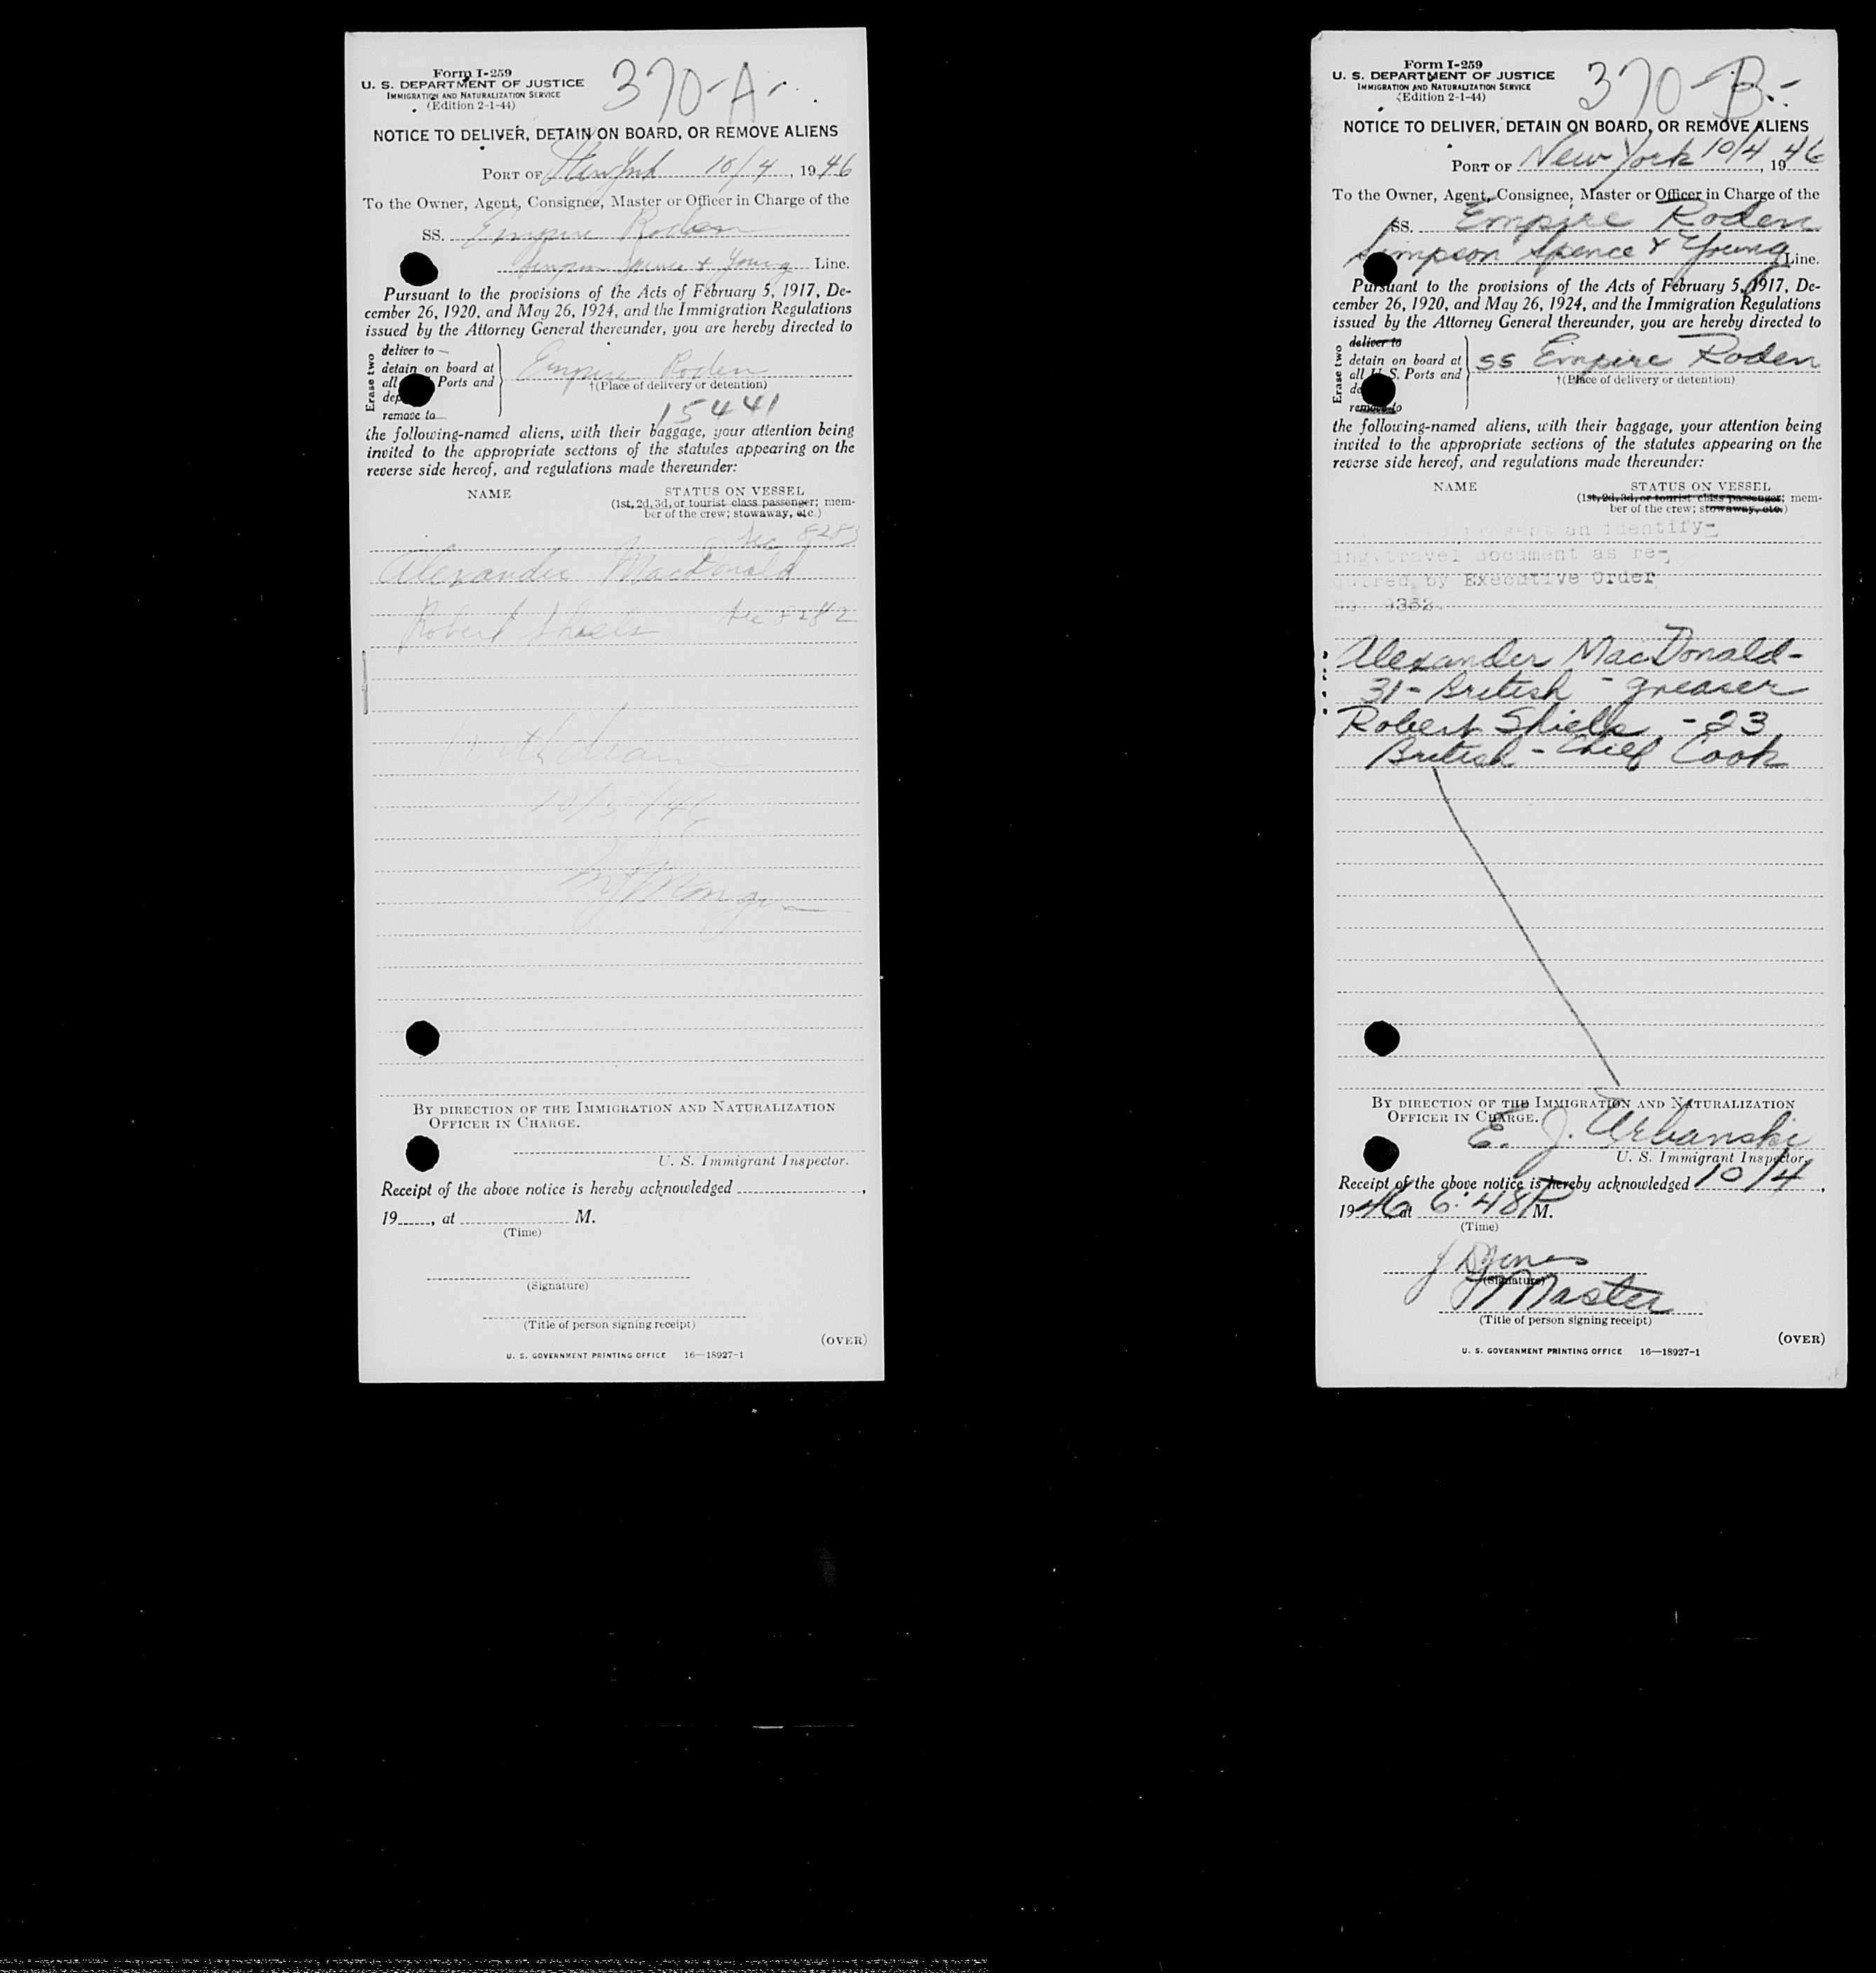 Form I-259
U. S. DEPARTMENT OF JUSTICE
IMMIGRATION AND NATURALIZATION SERVICE
(Edition 2-1-44)
370-A-
NOTICE TO DELIVER, DETAIN ON BOARD, OR REMOVE ALIENS
PORT OF New York 10/4, 1946
To the Owner, Agent, Consignee, Master or Officer in Charge of the
SS. Empire Roden
Simpson Spence & Young Line.
Pursuant to the provisions of the Acts of February 5, 1917, De-
cember 26, 1920, and May 26, 1924, and the Immigration Regulations
issued by the Attorney General thereunder, you are hereby directed to
Erase two
deliver to
detain on board at
all Ports and
dep
remove to
Empire Roden
†(Place of delivery or detention)
15441
the following-named aliens, with their baggage, your attention being
invited to the appropriate sections of the statutes appearing on the
reverse side hereof, and regulations made thereunder:
NAME
STATUS ON VESSEL
(1st, 2d, 3d, or tourist class passenger; mem-
ber of the crew; stowaway, etc.)
8283
Alexander MacDonald
Robert Shiels 8282
Withdrawn
10/5/46
Form I-259
U. S. DEPARTMENT OF JUSTICE
IMMIGRATION AND NATURALIZATION SERVICE
(Edition 2-1-44)
370-B-
NOTICE TO DELIVER, DETAIN ON BOARD, OR REMOVE ALIENS
PORT OF New York 10/4, 1946
To the Owner, Agent, Consignee, Master or Officer in Charge of the
SS. Empire Roden
Simpson Spence & Young Line.
Pursuant to the provisions of the Acts of February 5, 1917, De-
cember 26, 1920, and May 26, 1924, and the Immigration Regulations
issued by the Attorney General thereunder, you are hereby directed to
Erase two
deliver to
detain on board at
all U. S. Ports and
de
remove to
SS Empire Roden
†(Place of delivery or detention)
the following-named aliens, with their baggage, your attention being
invited to the appropriate sections of the statutes appearing on the
reverse side hereof, and regulations made thereunder:
NAME
STATUS ON VESSEL
(1st, 2d, 3d, or tourist class passenger; mem-
ber of the crew; stowaway, etc.)
present an identify-
ing travel document as re-
quired by Executive Order
9352.
Alexander MacDonald-
31- British - greaser
Robert Shiels - 23
British - Chief Cook
BY DIRECTION OF THE IMMIGRATION AND NATURALIZATION
OFFICER IN CHARGE.
U. S. Immigrant Inspector.
Receipt of the above notice is hereby acknowledged ,
19 , at M.
(Time)
(Signature)
(Title of person signing receipt)
(OVER)
U. S. GOVERNMENT PRINTING OFFICE 16—18927-1
BY DIRECTION OF THE IMMIGRATION AND NATURALIZATION
OFFICER IN CHARGE.
E. J. Urbanski
U. S. Immigrant Inspector.
Receipt of the above notice is hereby acknowledged 10/4,
1946 at 6:48P M.
(Time)
(Signature)
Master
(Title of person signing receipt)
(OVER)
U. S. GOVERNMENT PRINTING OFFICE 16—18927-1